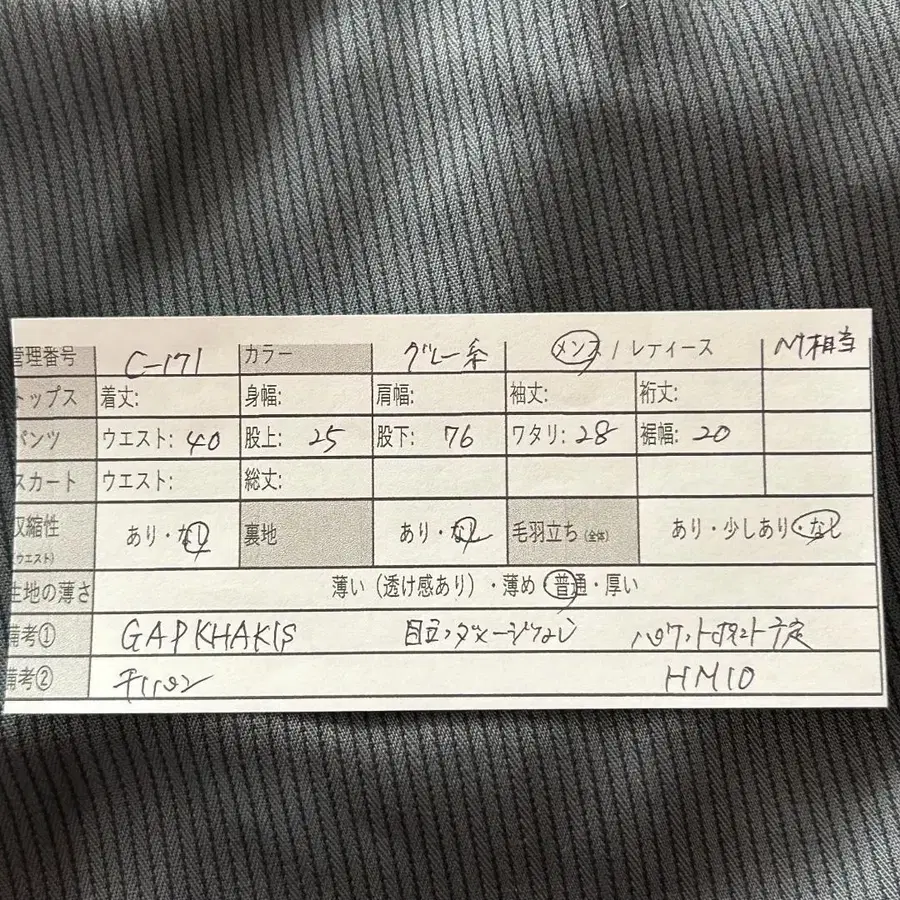 管理番号 C-171 カラー グレー系 メンズ / レディース M相当
トップス 着丈: 身幅: 肩幅: 袖丈: 裄丈:
パンツ ウエスト: 40 股上: 25 股下: 76 ワタリ: 28 裾幅: 20
スカート ウエスト: 総丈:
収縮性 (ウエスト) あり・なし 裏地 あり・なし 毛羽立ち (全体) あり・少しあり・なし
生地の薄さ 薄い（透け感あり）・薄め・普通・厚い
備考① GAP KHAKIS 目立つダメージなし
備考② HM10